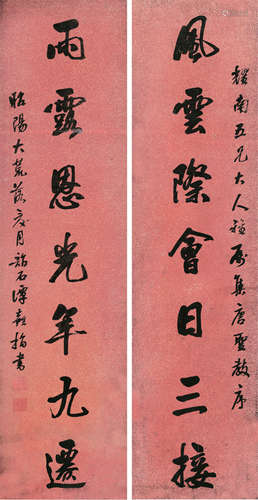 耀南五兄大人雅屬集唐聖教序
風雲際會日三接
雨露恩光年九遷
昭陽大荒落之月
石潭
書